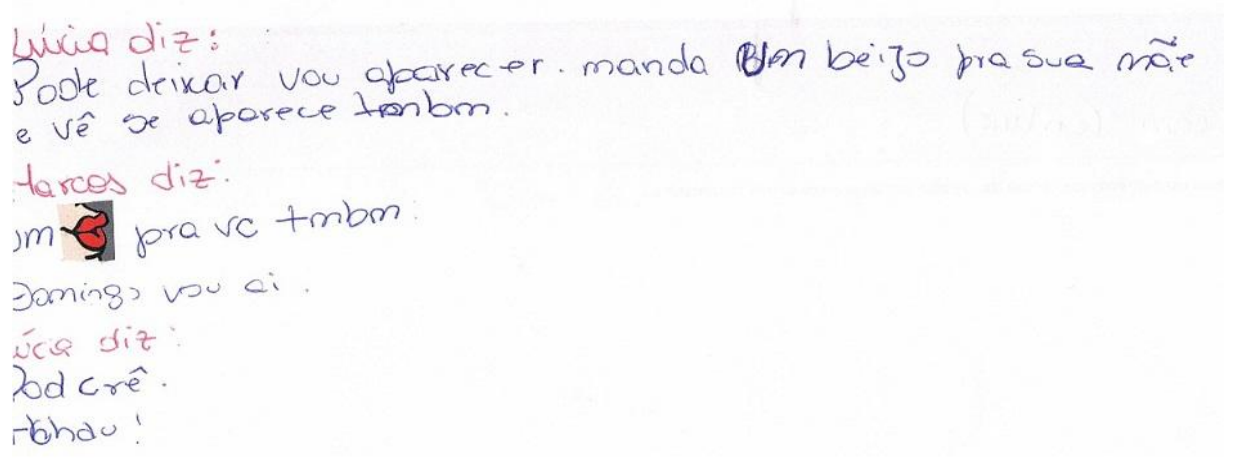 Lúcia diz:
Pode deixar vou aparecer. manda um beijo pra sua mãe
e vê se aparece tmbm.
Marcos diz:
um pra vc tmbm.
Domingo vou ai.
Lúcia diz:
Pod crê.